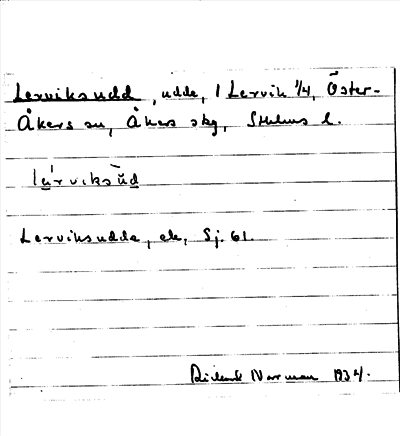 Lerviksudd, udde, 1 Lervik 1/4, Öster-
Åkers sn, Åkers skg, Sthlms l.
lä́rviksŭd
Lerviksudde, ek, Sj. 61.
Rickard Norrman 1934.